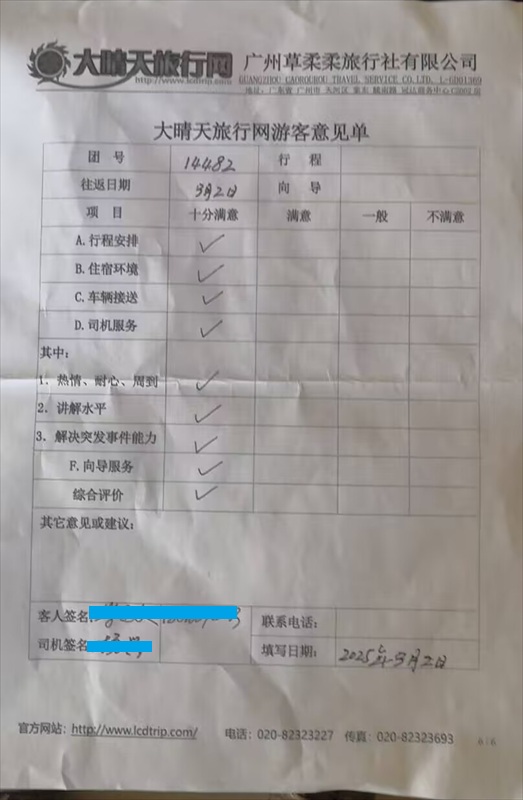 大晴天旅行网 广州草柔柔旅行社有限公司
http://www.lcdtrip.com/ GUANGZHOU CAOROUROU TRAVEL SERVICE CO.LTD. L-GD01369
大晴天旅行网游客意见单
团 号 14482 行 程
往返日期 3月2日 向 导
项 目 十分满意 满意 一般 不满意
A.行程安排 ✓
B.住宿环境 ✓
C.车辆接送 ✓
D.司机服务 ✓
其中:
1. 热情、耐心、周到 ✓
2. 讲解水平 ✓
3. 解决突发事件能力 ✓
F.向导服务 ✓
综合评价 ✓
其它意见或建议:
客人签名: 联系电话:
司机签名 填写日期: 2025年3月2日
官方网站: http://www.lcdtrip.com/ 电话: 020-82323227 传真: 020-82323693
6 / 6